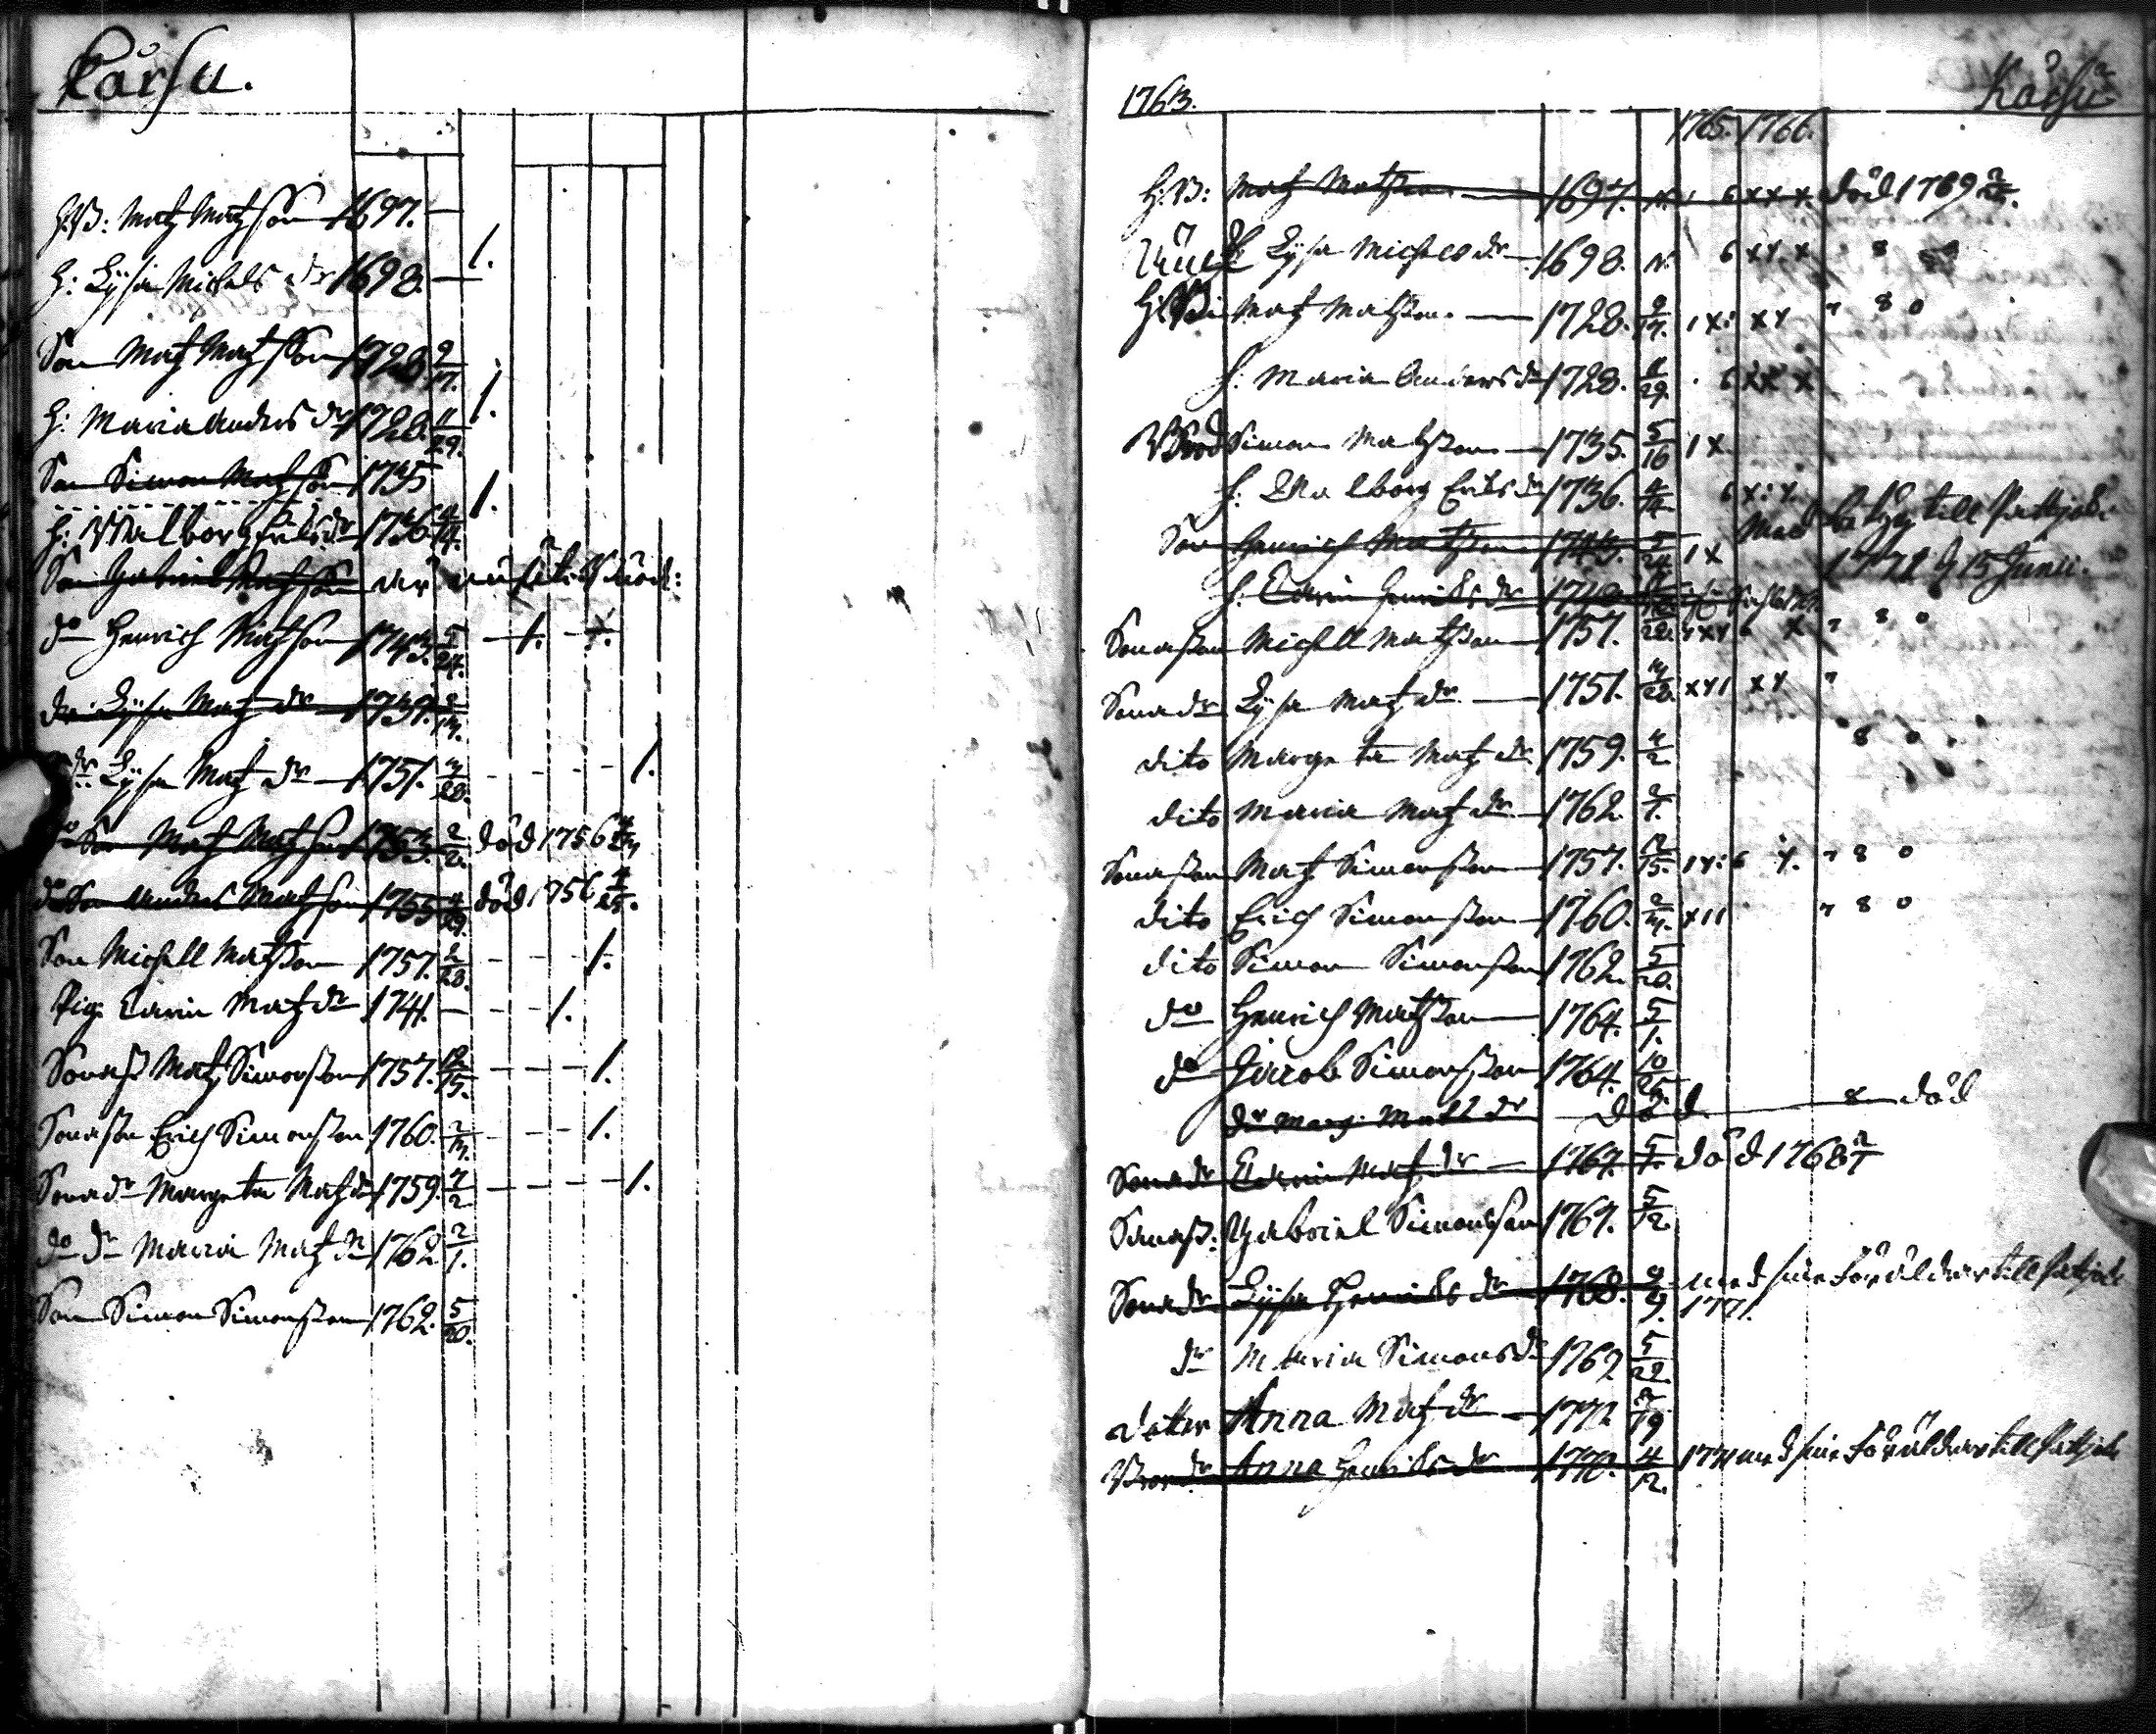 Kårsu.
H:B: Matz Matzson 1697. —
H: Lysa Michels dr 1698. — 1.
Son Matz Matzson 1728. 9/17.
H: Maria Anders dr 1728. 11/29. 1.
Son Simon Matzson 1735 1.
H: Walborg Erics dr 1736. 4/14.
Son Gabriel Matzson är
do Henrich Matzson 1743. 5/24. — 1. —
dr Lysa Matz dr — 1739. 2/13.
dr Lysa Matz dr — 1751. 3/28. - - - - 1.
do Son Matz Matzson 1753. 2/2. död 1756
do Son Anders Matzson 1755 4/29. död 1756 4/25.
Son Michell Matzson 1757. 2/28. - - - 1.
Pig. Carin Matz dr 1741. — - - 1.
Sonas. Matz Simonsson 1757. 12/15. - - - 1.
Sonason Erich Simonsson 1760. 2/3. - - - 1.
Sonadr Margeta Matz dr 1759. 4/2 - - - - 1.
do dr Maria Matz dr 1762 2/1.
Son Simon Simonsson 1762. 5/20.
1763. Kårsu
1765. 1766.
H:B: Matz Matzson — 1697. N. 6 x x x. död 1769
Lysa Michels dr — 1698. N. 6 x x x 8
H:B: Matz Matzson. — 1728. 9/17. 1 x : x x " 8 0
H: Maria Anders dr 1728. 11/29. . 6 x x x
Brod Simon Matzson — 1735. 5/16 1 x
H: Walborg Erics dr 1736. 4/14. 6 x : x.
Son Henrich Matzson 1743. 5/24 1 x Med till
H: Carin Henrichs dr 1771 d 15 Junii.
Sonason Michell Matzson — 1757. 2/28. x x x 6 x " 8 0
Sonadr Lysa Matz dr — 1751. 3/28. x x 1 x x "
dito Margeta Matz dr 1759. 4/2 8 0
dito Maria Matz dr — 1762. 2/1.
Sonason Matz Simonsson — 1757. 12/15. 1 x : 6 x. " 8 0
dito Erich Simonsson — 1760. 2/3. x 1 1 " 8 0
dito Simon Simonsson 1762. 5/20.
do Henrich Matzson — 1764. 5/1.
do Jacob Simonsson 1764. 10/25.
dr Marg. Matz dr — död 8 — död
Sonadr Carin Matz dr — 1767. 5/1. död 1768
Sonas: Gabriel Simonsson 1767. 5/12.
Sonadr Lysa Henrichs dr 1768. 9/9. med sine Föräldrar till
1771.
dr Maria Simons dr 1769 5/22
dotter Anna Matz dr — 1772 /19
Bror dr Anna Henrichs dr 1770. 4/12. 1771 med sine Föräldrar till